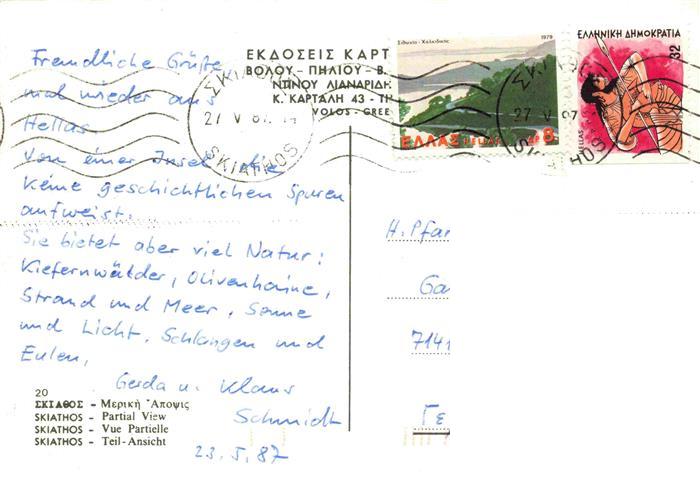 Freundliche Grüße
mal wieder aus
Hellas
Von einer Insel die
keine geschichtlichen Spuren
aufweist.
Sie bietet aber viel Natur:
Kiefernwälder, Olivenhaine,
Strand und Meer, Sonne
und Licht, Schlangen und
Eulen,
Gerda u. Klaus
Schmidt
23.5.87
20
ΣΚΙΑΘΟΣ - Μερική Ἄποψις
SKIATHOS - Partial View
SKIATHOS - Vue Partielle
SKIATHOS - Teil-Ansicht
ΕΚΔΟΣΕΙΣ ΚΑΡΤ
ΒΟΛΟΥ - ΠΗΛΙΟΥ - Β.
ΝΤΙΝΟΥ ΛΙΑΝΑΡΙΔ
Κ. ΚΑΡΤΑΛΗ 43 - ΤΗ
VOLOS - GREE
ΣΚΙΑΘΟΣ
27 V 87 14
SKIATHOS
Σιθωνία - Χαλκιδικής
1979
ΕΛΛΑΣ HELLAS ΔΡ 8
27 V 87
SKIATHOS
ΕΛΛΗΝΙΚΗ ΔΗΜΟΚΡΑΤΙΑ
32
HELLAS
H. Pfa
Ga
7141